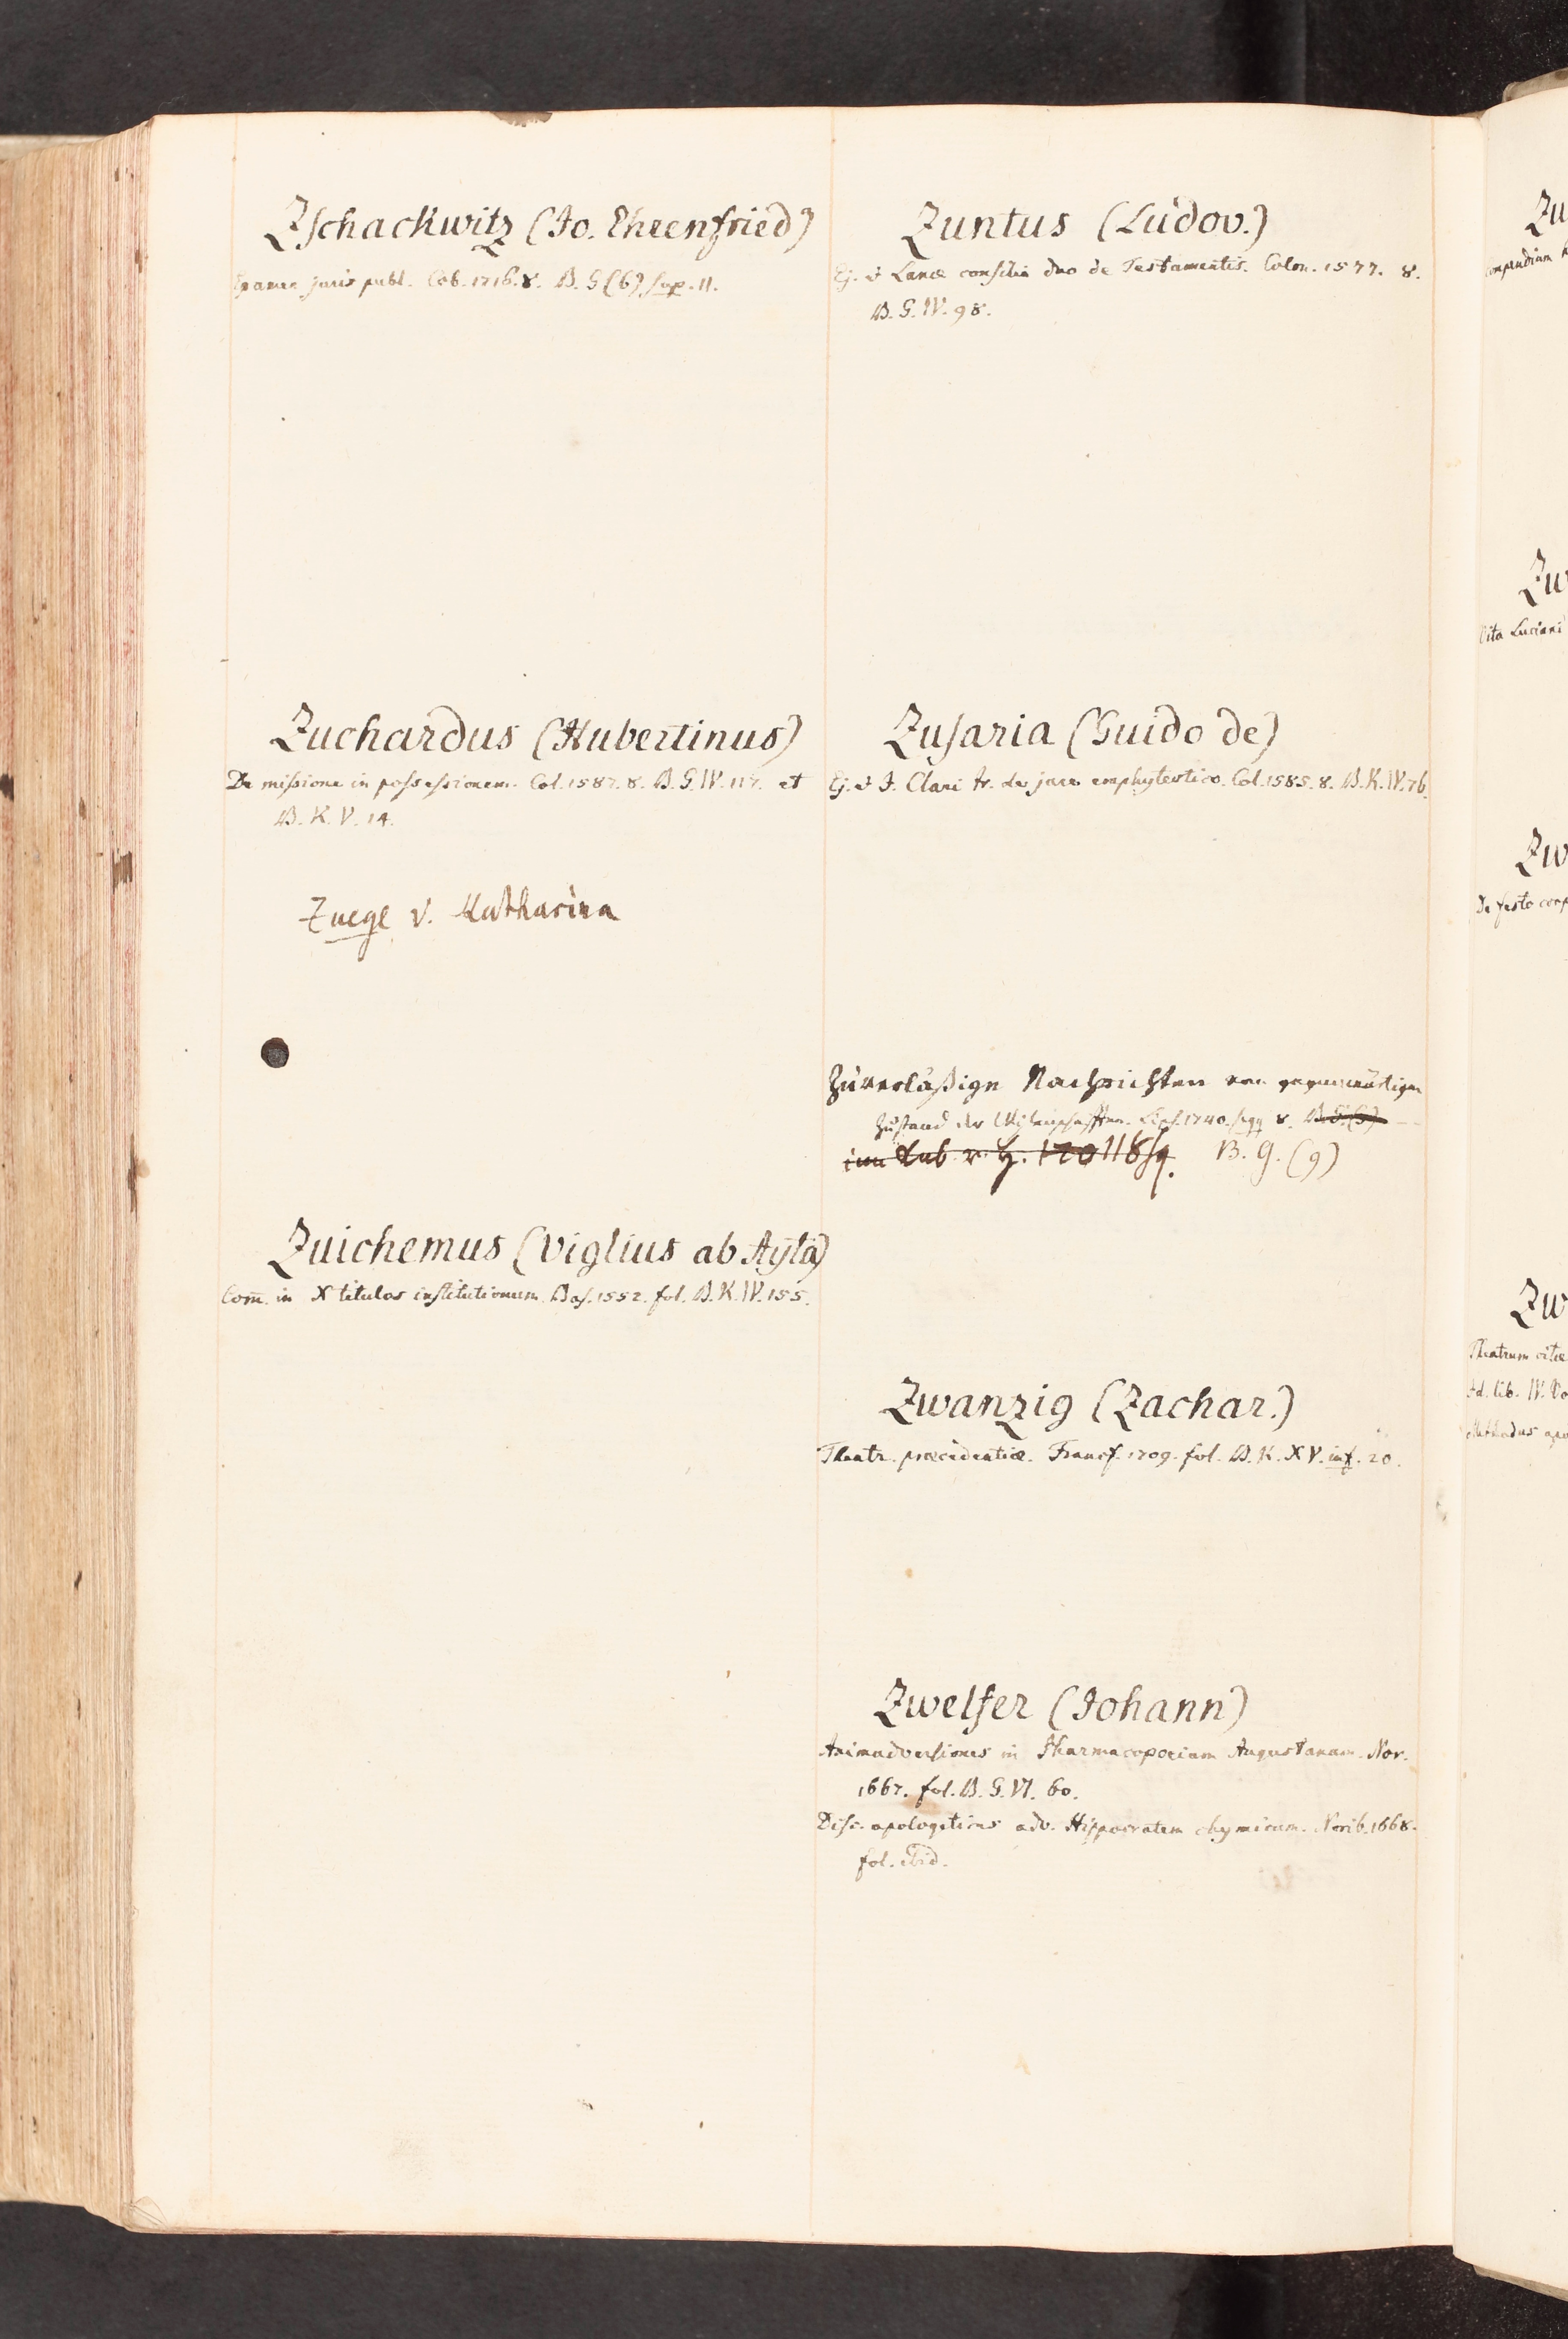 Zschackwitz (Jo. Ehrenfried)
Examen juris publ. Cob. 1716. 8. B. G (6) sup. 11.
Zuchardus (Hubertinus)
De missione in possessionem. Col. 1587. 8. B. G. IV. 117. et
B. K. V. 14.
Zuege v. Katharina
Zuichemus (Viglius ab Aÿta)
Com̄. in X titulos institutionum. Bas. 1552. fol. B. K. IV. 155.
Zuntus (Ludov.)
Ej. & Lanæ consilia duo de Testamentis. Colon. 1577. 8.
B. G. IV. 98.
Zusaria (Guido de)
Ej. & J. Clari tr. de jure emphyteutico. Col. 1585. 8. B. K. IV. 76.
Zuverläßige Nachrichten von gegenwärtigen
Zustand der Wißenschafften. Lips. 1740. sqq 8. B. G. (9)
B. G. (9)
Zwanzig (Zachar.)
Theatr. præcedentiæ. Francf. 1709. fol. B. K. XV. inf. 20.
Zwelfer (Johann)
Animadversiones in Pharmacopoeiam Augustanam. Nor.
1667. fol. B. G. VI. 60.
Disc. apologeticus adv. Hippocratem chymicum. Norib. 1668.
fol. ibid.
Zu
Compendium
Zw
Vita Luciani
Zw
De festo corp
Zw
Theatrum vitæ
Ad. lib. IV.
Methodus